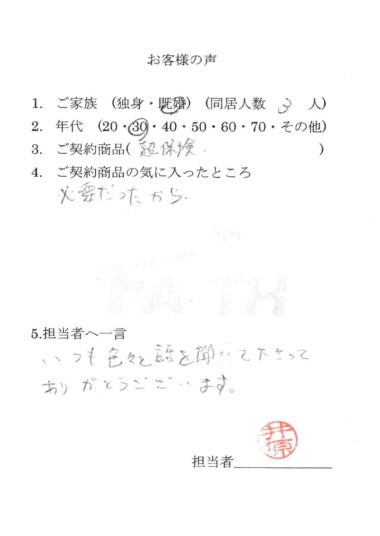 お客様の声
1. ご家族 (独身・既婚) (同居人数 3 人)
2. 年代 (20・30・40・50・60・70・その他)
3. ご契約商品( 超保険. )
4. ご契約商品の気に入ったところ
必要だったから.
5.担当者へ一言
いつも色々と話を聞いて下さって
ありがとうございます。
井原
担当者